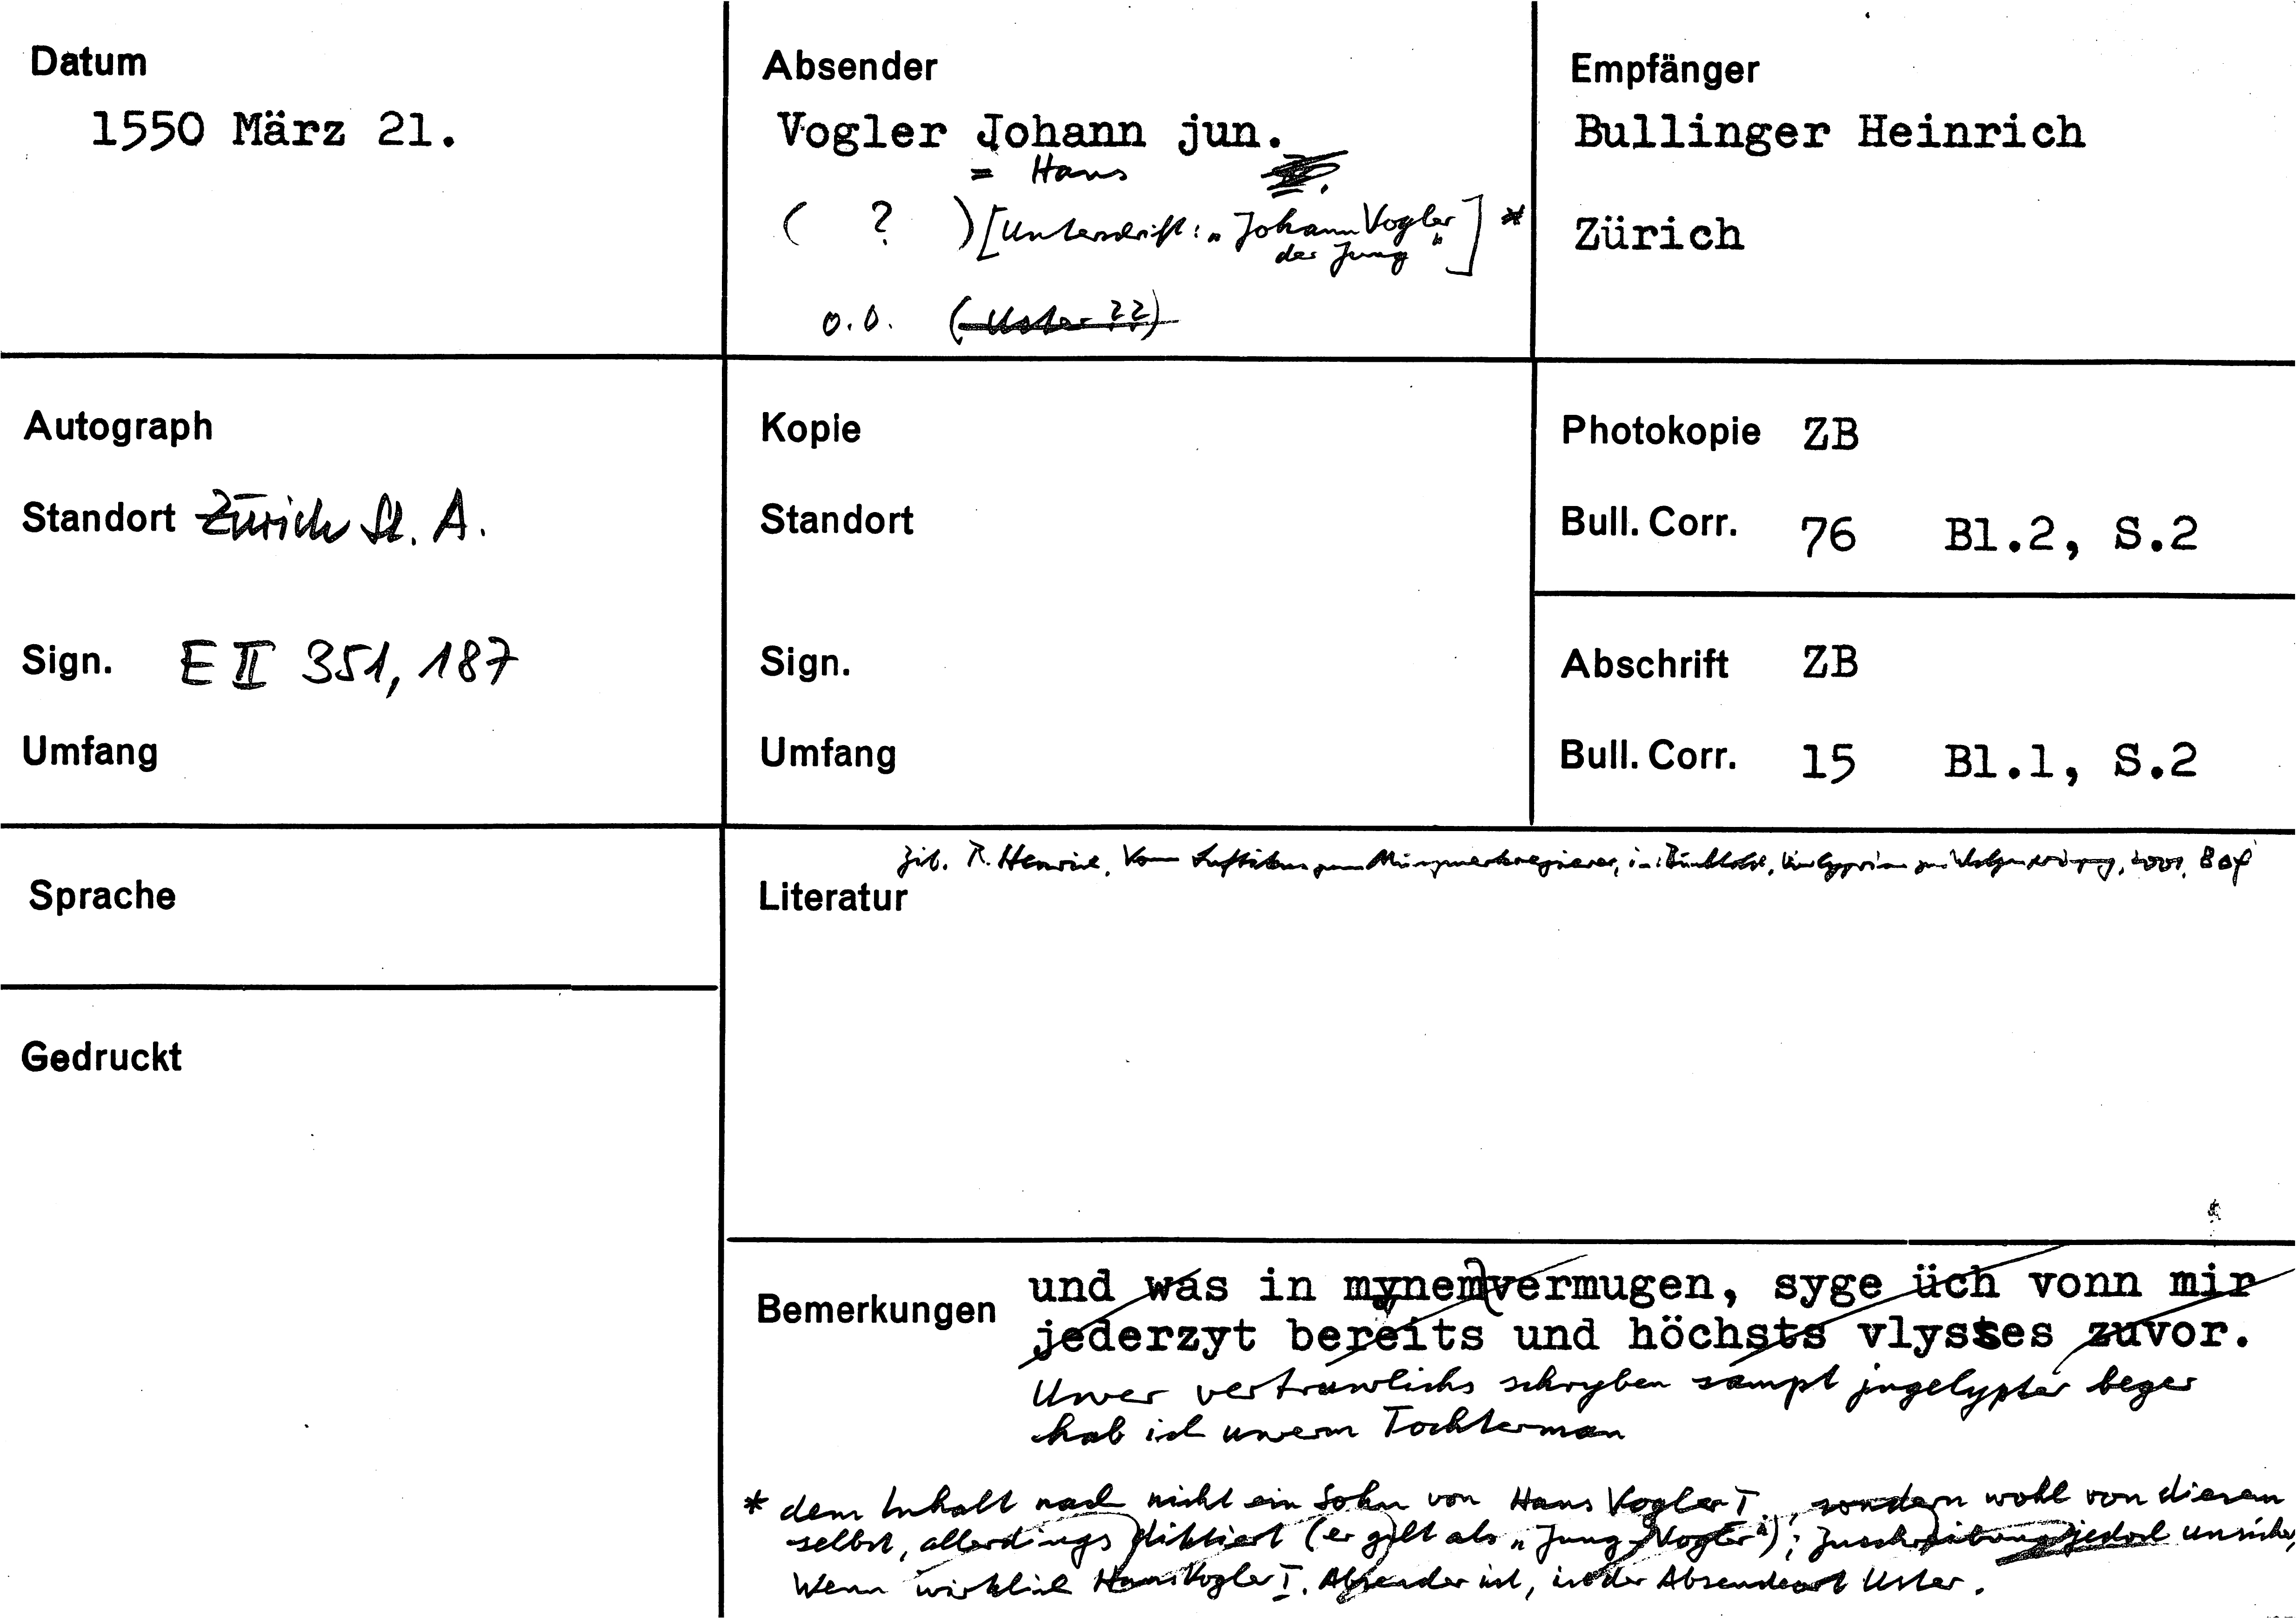 Datum
1550 März 21.
Absender
Vogler Johann jun.
= Hans
( ? ) [Unterschrift: „Johann Vogler
der Jung"] *
o.O. (Uster ??)
Empfänger
Bullinger Heinrich
Zürich
Autograph
Standort Zürich St. A.
Sign. E II 351, 187
Umfang
Kopie
Standort
Sign.
Umfang
Photokopie ZB
Bull. Corr. 76 Bl.2, S.2
Abschrift ZB
Bull. Corr. 15 Bl.1, S.2
Sprache
Gedruckt
Zit. R. Henrich, Vom Luftikus zum
Literatur
Bemerkungen
und was in mynem vermugen, syge üch vonn mir
jederzyt bereits und höchsts vlysses zuvor.
Uwer vertruwlichs schryben sampt jngelypter beger
hab ich uwerm Tochterman
* dem Inhalt nach nicht ein Sohn von Hans Vogler I, sondern wohl von diesem
selbst, allerdings diktiert (er gilt als „Jung-Vogler"); Zuschreibung jedoch unsicher,
Wenn wirklich Hans Vogler I. Absender ist, ist der Absendeort Uster.